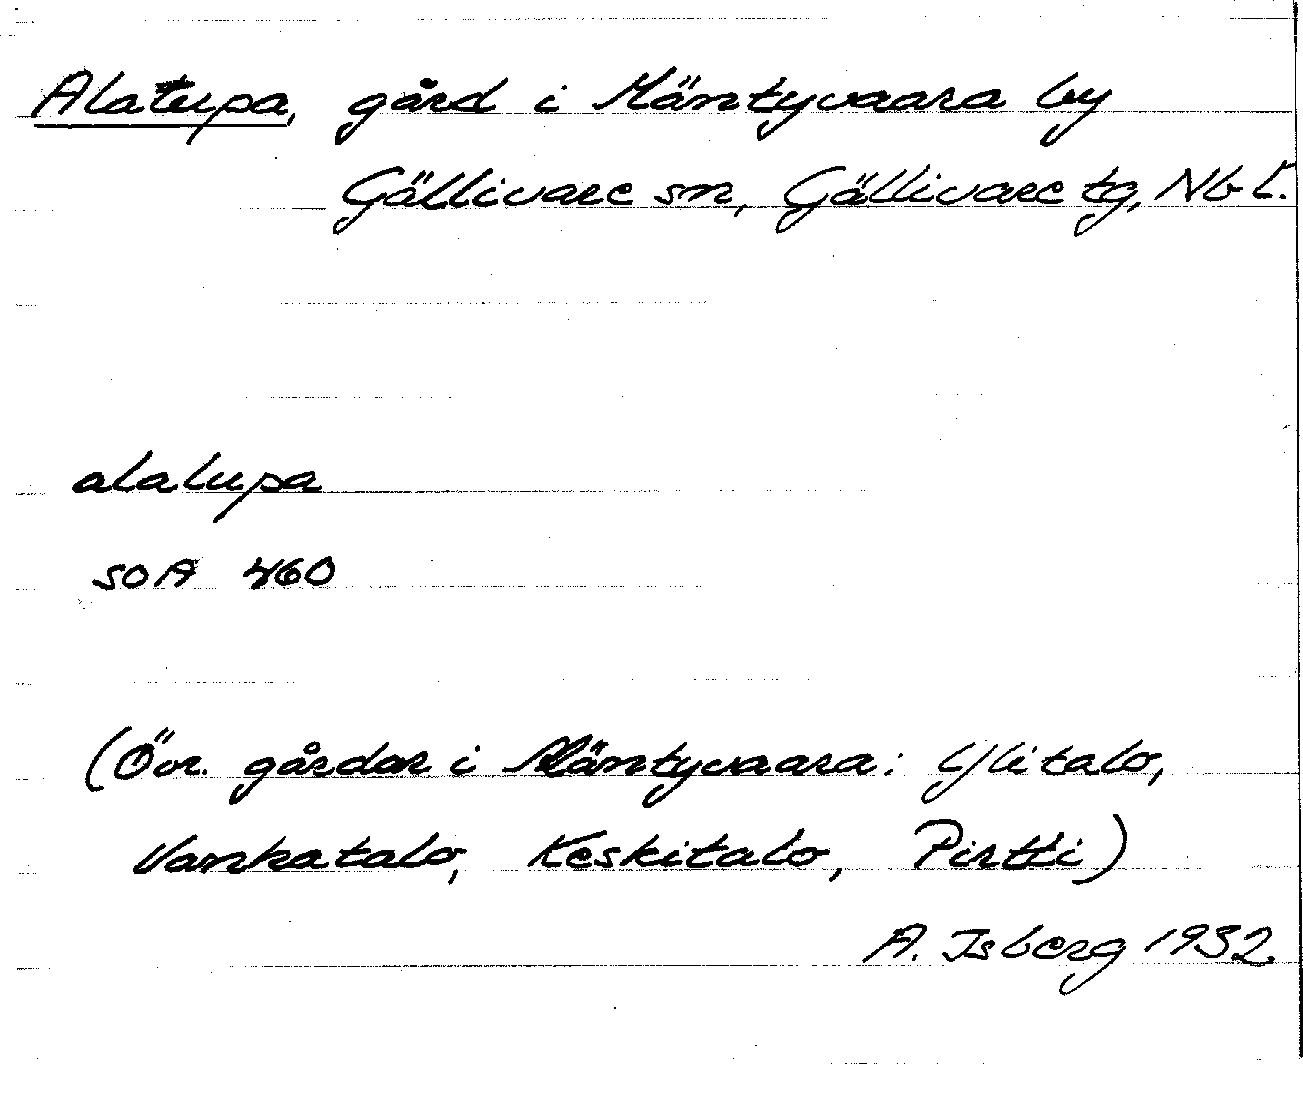 Alatupa, gård i Mäntyvaara by
Gällivare sn, Gällivare tg, Nb L.
alalupa
SOA 460
(Övr. gårdar i Mäntyvaara: Ylitalo,
Vanhatalo, Keskitalo, Pirtti)
A. Isberg 1932